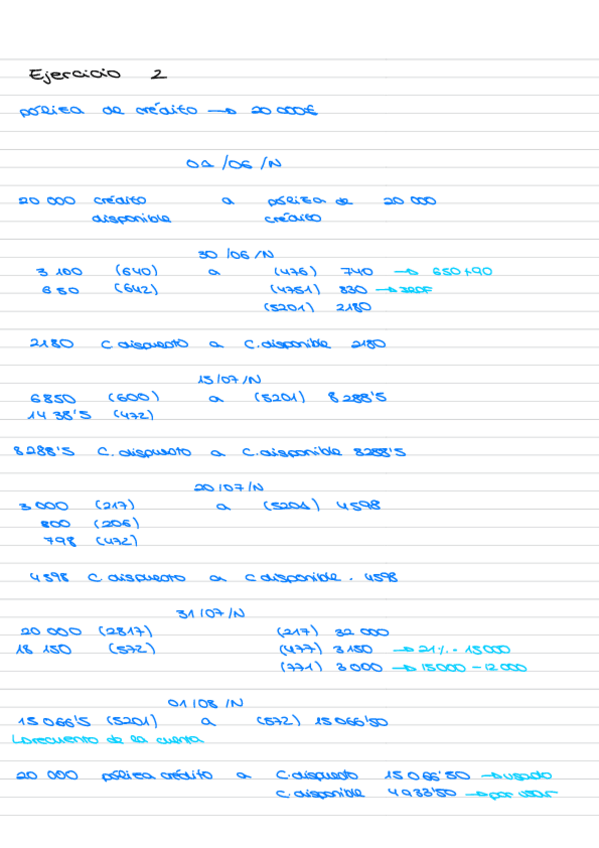 Ejercicio 2
póliza de crédito → 20 000€
01/06/N
20 000 crédito a póliza de 20 000
disponible crédito
30/06/N
3 100 (640) a (476) 740 → 650+90
650 (642) (4751) 830 → IRPF
(5201) 2180
2180 C dispuesto a C. disponible 2180
15/07/N
6850 (600) a (5201) 8288'5
1438'5 (472)
8288'5 C. dispuesto a C. disponible 8288'5
20/07/N
3 000 (217) a (5201) 4598
800 (206)
798 (472)
4598 C dispuesto a C disponible. 4598
31/07/N
20 000 (2817) (217) 32 000
18 150 (572) (477) 3 150 → 21%. 15000
(771) 3 000 → 15000 - 12 000
01/08/N
15 066'5 (5201) a (572) 15 066'50
↳ recuento de la cuenta
20 000 póliza crédito a C. dispuesto 15 066'50 → usado
C. disponible 4933'50 → por usar